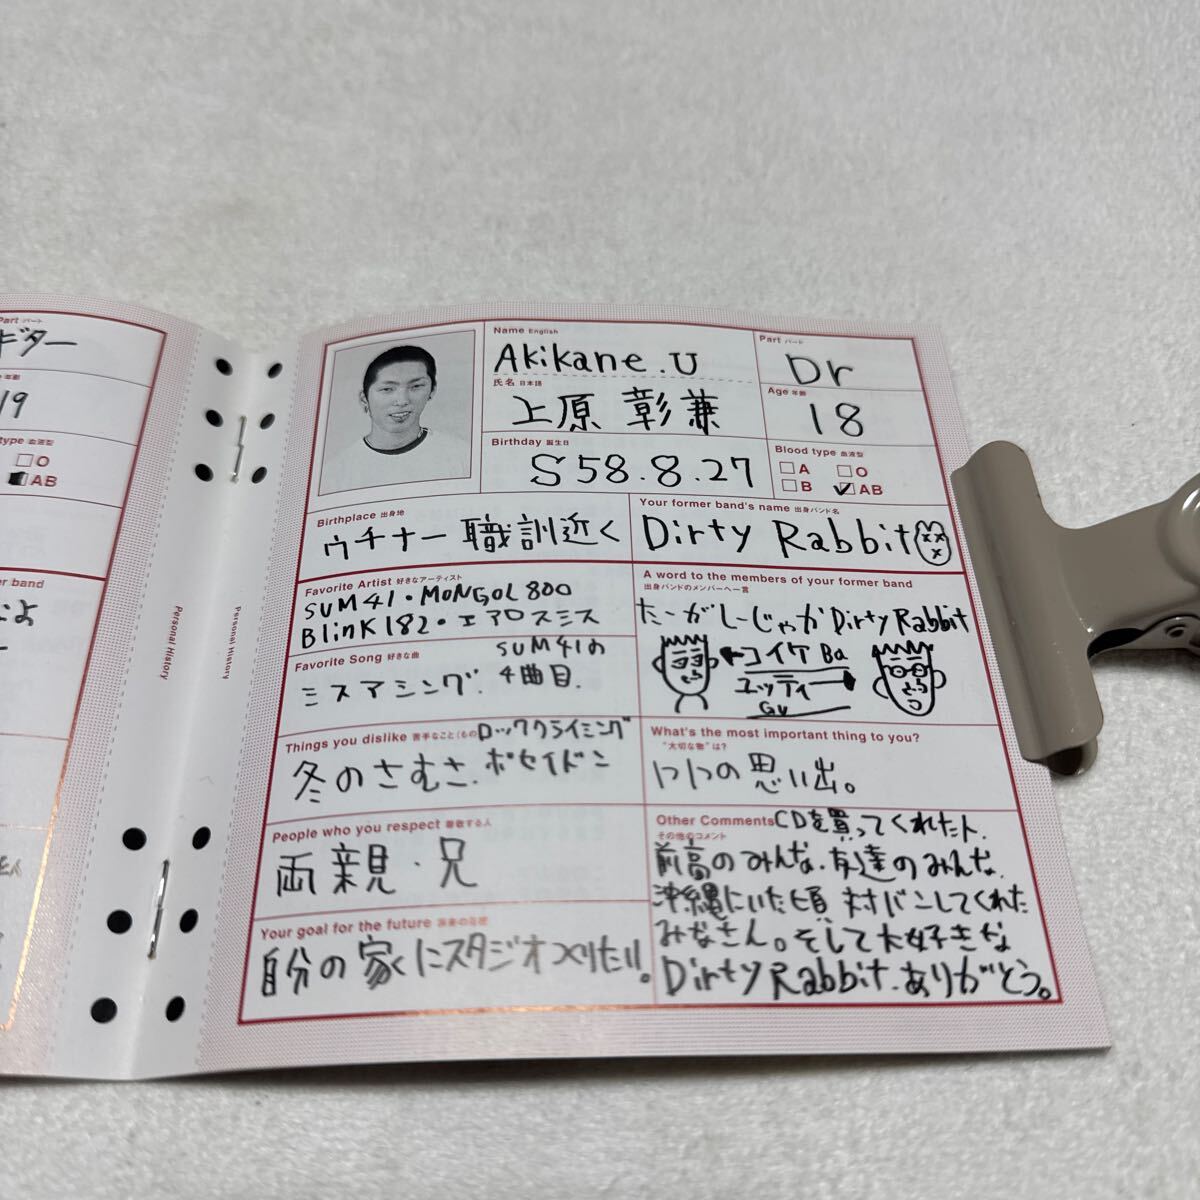 Part パート
ギター
年齢
19
type 血液型
O
AB
er band
Personal History
Personal History
Name English
Akikane.U
氏名 日本語
上原 彰兼
Part パート
Dr
Age 年齢
18
Birthday 誕生日
S58.8.27
Blood type 血液型
A O
B AB
Birthplace 出身地
ウチナー 職訓近く
Your former band's name 出身バンド名
Dirty Rabbit
Favorite Artist 好きなアーティスト
SUM41・MONGOL800
Blink182・エアロスミス
A word to the members of your former band
出身バンドのメンバーへ一言
たーがしーじゃがDirty Rabbit
コイケ Ba
ユッティ
Gu
Favorite Song 好きな曲
SUM41の
ミスアシング. 4曲目.
Things you dislike 苦手なこと(もの)
ロッククライミング
冬のさむさ.ポセイドン
What's the most important thing to you?
"大切な物"は?
1つ1つの思い出。
People who you respect 尊敬する人
両親・兄
Other Comments
その他のコメント
CDを買ってくれた人.
前高のみんな.友達のみんな.
沖縄にいた頃対バンしてくれた
みなさん。そして大好きな
Dirty Rabbit.ありがとう。
Your goal for the future 将来の目標
自分の家にスタジオつくりたい。